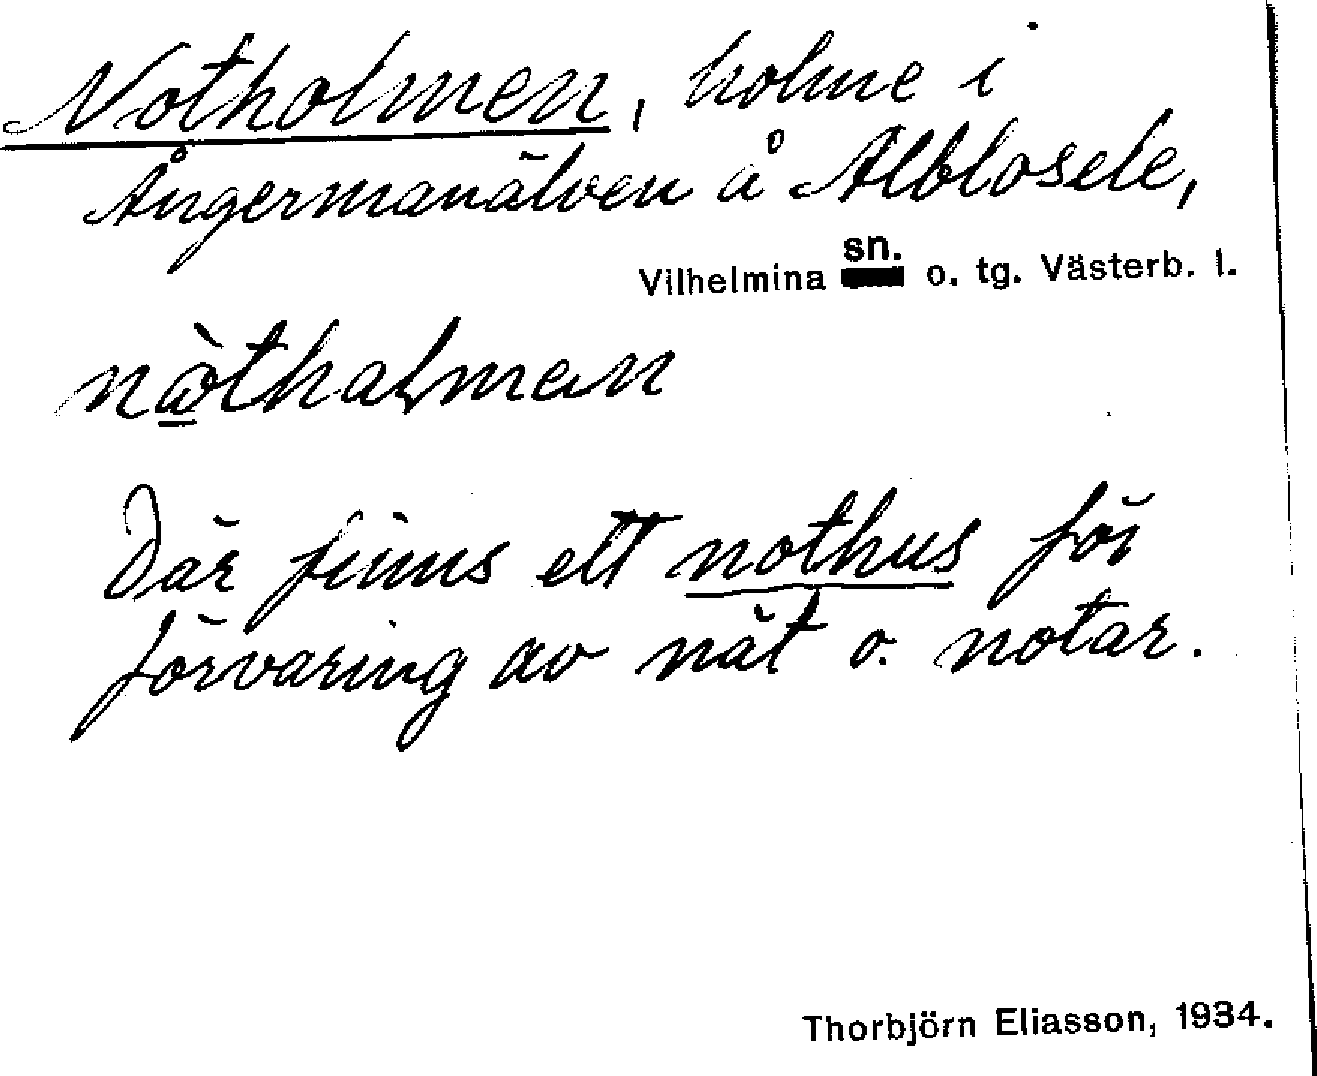 Notholmen, holme i
Ångermanälven å Alblosele,
Vilhelmina sn. o. tg. Västerb. l.
Där finns ett nothus för
förvaring av nät o. notar.
Thorbjörn Eliasson, 1934.